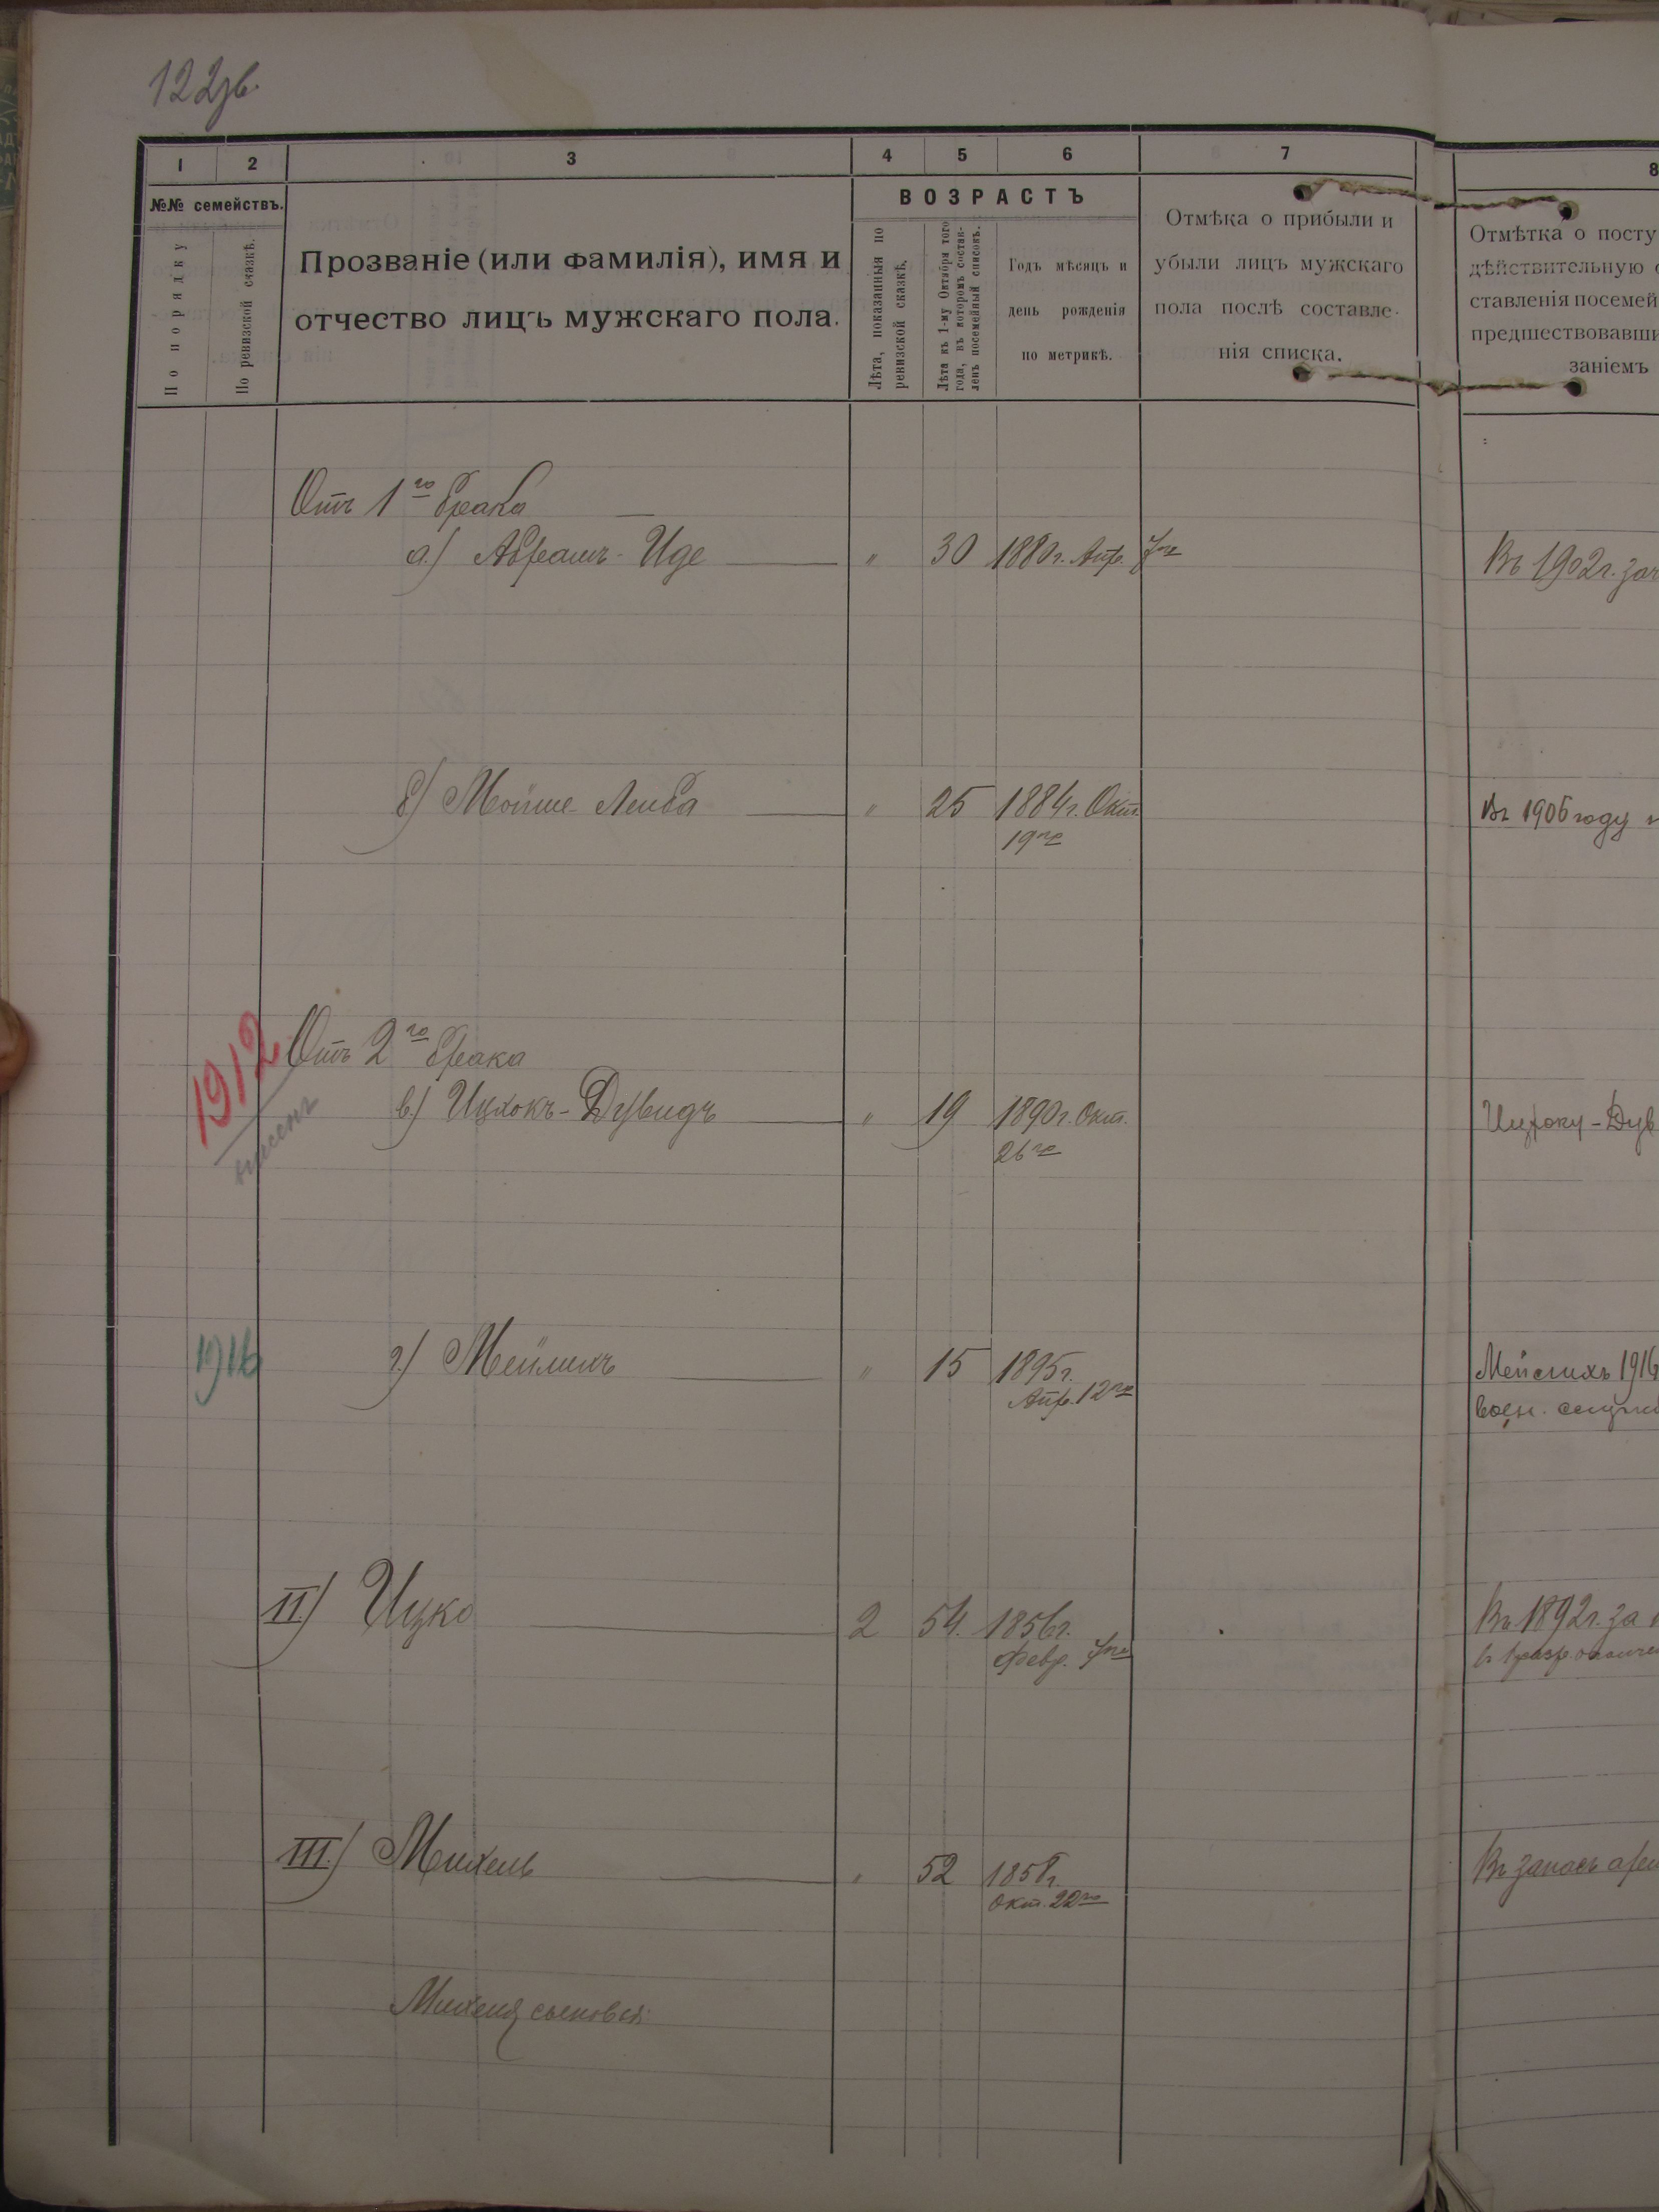 122
1 2 3 4 5 6 7 8
№№ семействъ.
По порядку
По ревизской сказкѣ.
Прозваніе (или фамилія), имя и
отчество лицъ мужскаго пола.
ВОЗРАСТЪ
Лѣта, показанныя по
ревизской сказкѣ.
Лѣта къ 1-му Октября того
года, въ которомъ состав-
ленъ посемейный списокъ.
Годъ мѣсяцъ и
день рожденія
по метрикѣ.
Отмѣка о прибыли и
убыли лицъ мужскаго
пола послѣ составле-
нія списка.
Отмѣтка о посту
дѣйствительную
ставленія посемей
предшествовавши
заніемъ
Отъ 1го брака
а) Абрамъ-Иде " 30 1880г. Апр. 7го
Въ 1902г. зач
б) Мойше Лейба " 25 1884г. Окт.
19го
Въ 1906 году
1912
Отъ 2го брака
в) Ицхокъ-Дувидъ " 19 1890г. Окт.
26го
Ицхоку-Дув
1916
г) Мейлихъ " 15 1895г.
Апр. 12го
Мейлихъ 1916
воен. служ
II) Ицко 2 54. 1856г.
Февр. 7го
Въ 1892г. за
III) Михель " 52 1858г.
Окт. 22го
Въ запасъ арм
Михеля сыновья: